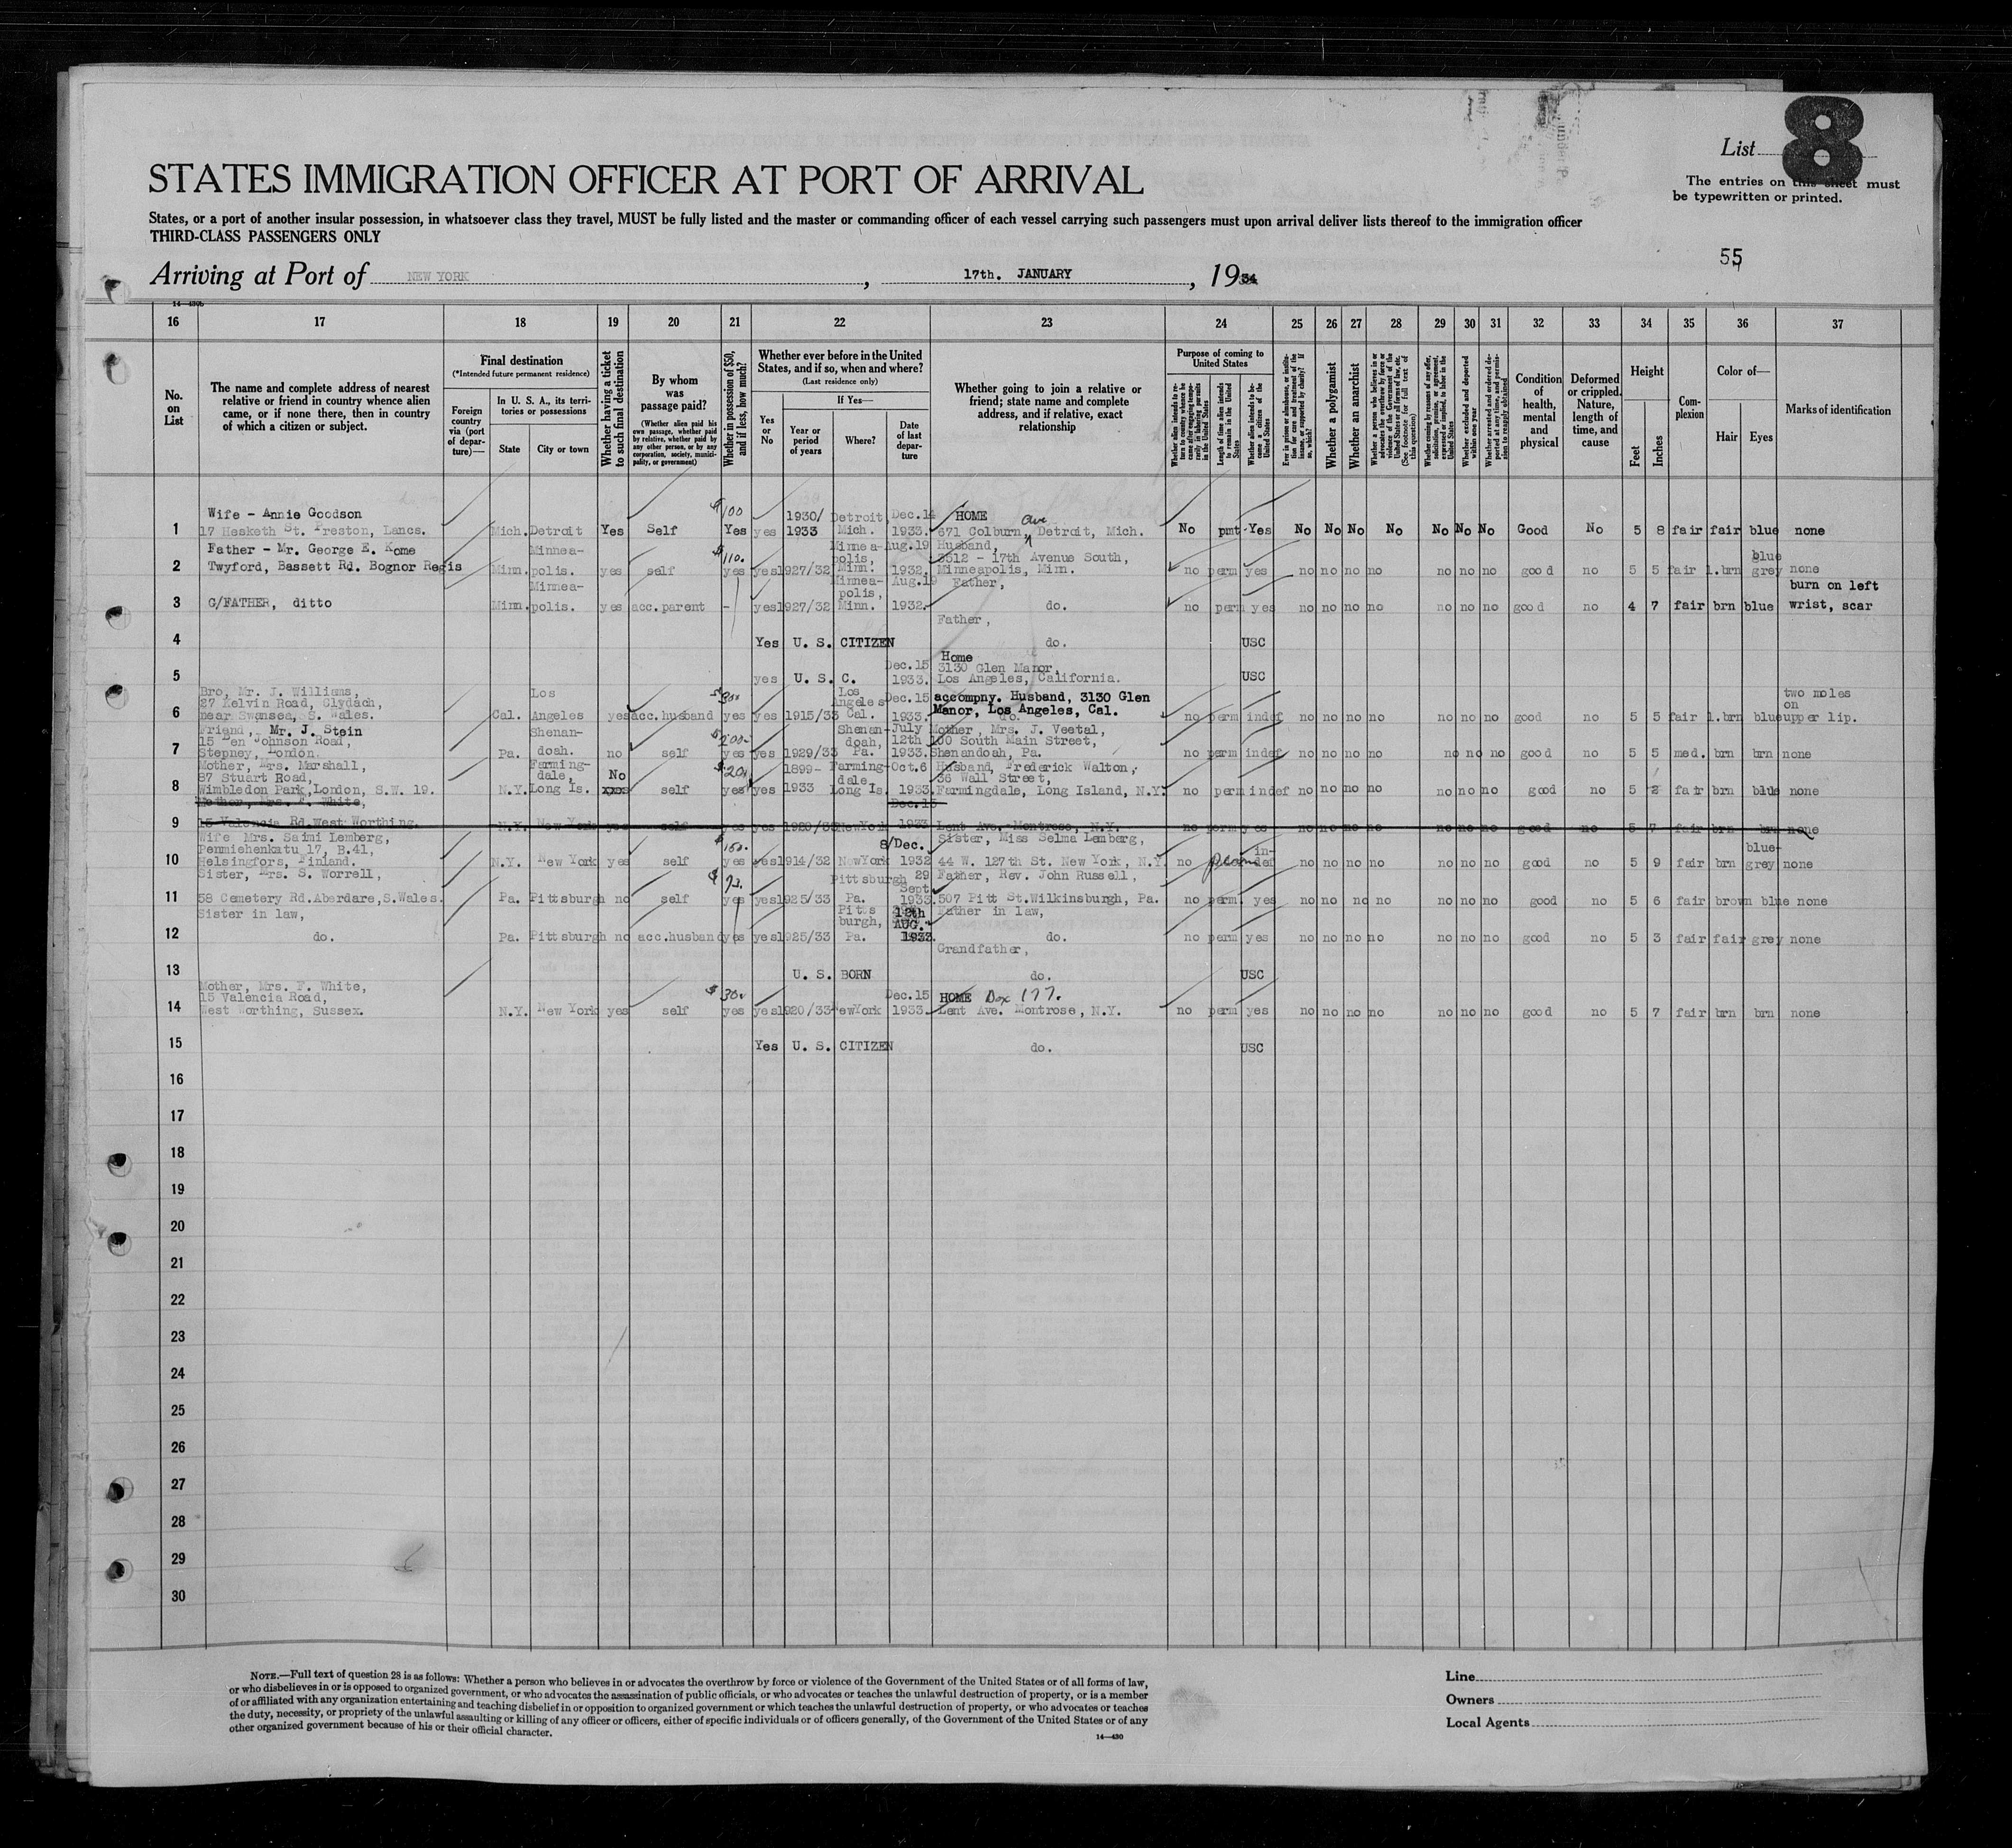 List 8
The entries on this sheet must
be typewritten or printed.
STATES IMMIGRATION OFFICER AT PORT OF ARRIVAL
States, or a port of another insular possession, in whatsoever class they travel, MUST be fully listed and the master or commanding officer of each vessel carrying such passengers must upon arrival deliver lists thereof to the immigration officer
THIRD-CLASS PASSENGERS ONLY
55
Arriving at Port of NEW YORK, 17th. JANUARY, 1934
14—430b
16 17 18 19 20 21 22 23 24 25 26 27 28 29 30 31 32 33 34 35 36 37
No. on List
The name and complete address of nearest
relative or friend in country whence alien
came, or if none there, then in country
of which a citizen or subject.
Final destination
(*Intended future permanent residence)
Foreign country via (port of departure)—
In U. S. A., its territories or possessions
State
City or town
Whether having a ticket to such final destination
By whom was passage paid?
(Whether alien paid his own passage, whether paid by relative, whether paid by any other person, or by any corporation, society, municipality, or government)
Whether in possession of $50, and if less, how much?
Whether ever before in the United States, and if so, when and where?
(Last residence only)
Yes or No
If Yes—
Year or period of years
Where?
Date of last departure
Whether going to join a relative or
friend; state name and complete
address, and if relative, exact
relationship
Purpose of coming to United States
Whether alien intends to return to country whence he came after engaging temporarily in laboring pursuits in the United States
Length of time alien intends to remain in the United States
Whether alien intends to become a citizen of the United States
Ever in prison or almshouse, or institution for care and treatment of the insane, or supported by charity? If so, which?
Whether a polygamist
Whether an anarchist
Whether a person who believes in or advocates the overthrow by force or violence of the Government of the United States or all forms of law, etc. (See footnote for full text of this question)
Whether coming by reasons of any offer, solicitation, promise, or agreement, expressed or implied, to labor in the United States
Whether excluded and deported within one year
Whether arrested and ordered deported at any time, and permission to reapply obtained
Condition of health, mental and physical
Deformed or crippled. Nature, length of time, and cause
Height
Feet
Inches
Complexion
Color of—
Hair
Eyes
Marks of identification
Wife - Annie Goodson $100 1930/ Detroit, Dec.14 HOME Ave
1 17 Hesketh St. Preston, Lancs. Mich. Detroit Yes Self Yes yes 1933 Mich. 1933. 671 Colburn, Detroit, Mich. No pmt- Yes No No No No No No No Good No 5 8 fair fair blue none
Father - Mr. George E. Kome Minnea- $110. Minnea-polis, Aug.19 Husband, 3512 - 17th Avenue South, blue
2 Twyford, Bassett Rd. Bognor Regis Minn. polis. yes self yes yes 1927/32 Minn. 1932. Minneapolis, Minn. no perm yes no no no no no no no good no 5 5 fair l.brn grey none
Minnea- Minnea-polis, Aug.19 Father, burn on left
3 G/FATHER, ditto Minn. polis. yes acc. parent - yes 1927/32 Minn. 1932. do. no perm yes no no no no no no no good no 4 7 fair brn blue wrist, scar
Father,
4 Yes U. S. CITIZEN do. USC
Home
Dec.15 3130 Glen Manor,
5 yes U. S. C. 1933. Los Angeles, California. USC
Bro, Mr. J. Williams, Los Los two moles
27 Kelvin Road, Clydach, Angeles Dec.15 accompny. Husband, 3130 Glen on
6 near Swansea, S. Wales. Cal. Angeles yes acc.husband yes yes 1915/33 Cal. 1933. Manor, Los Angeles, Cal. do. no perm indef no no no no no no no good no 5 5 fair l.brn blue upper lip.
Friend, Mr. J. Stein Shenan- Shenan- July Mother, Mrs. J. Veetal,
15 Ben Johnson Road, doah, 12th 100 South Main Street,
7 Stepney, London. Pa. doah. no self yes yes 1929/33 Pa. 1933. Shenandoah, Pa. no perm indef no no no no no no no good no 5 5 med. brn brn none
Mother, Mrs. Marshall, Farming- 1899- Farming- Oct.6 Husband, Frederick Walton,
87 Stuart Road, dale, No $20 dale, 36 Wall Street,
8 Wimbledon Park, London, S.W. 19. N.Y. Long Is. self yes yes 1933 Long Is. 1933. Farmingdale, Long Island, N.Y. no perm indef no no no no no no no good no 5 2 fair brn blue none
Mother, Mrs. F. White, Dec.15
9 15 Valencia Rd. West Worthing. N.Y. New York yes self yes yes 1920/33 NewYork 1933 Lent Ave. Montrose, N.Y. no perm yes no no no no no no no good no 5 7 fair brn brn none
Wife Mrs. Saimi Lemberg, $150. 8/Dec. Sister, Miss Selma Lemberg, in- blue-
Penmiehenkatu 17, B.41,
10 Helsingfors, Finland. N.Y. New York yes self yes yes 1914/32 NewYork 1932 44 W. 127th St. New York, N.Y. no perm def no no no no no no no good no 5 9 fair brn grey none
Sister, Mrs. S. Worrell, Pittsburgh 29 Sept Father, Rev. John Russell,
11 58 Cemetery Rd. Aberdare, S.Wales. Pa. Pittsburgh no self yes yes 1925/33 Pa. 1933. 507 Pitt St. Wilkinsburgh, Pa. no perm. yes no no no no no no no good no 5 6 fair brown blue none
Sister in law, Pitts burgh, 12th AUG. Father in law,
12 do. Pa. Pittsburgh no acc.husband yes yes 1925/33 Pa. 1933. do. no perm yes no no no no no no no good no 5 3 fair fair grey none
Grandfather,
13 U. S. BORN do. USC
Mother, Mrs. F. White,
15 Valencia Road, $30 Dec.15 HOME Box 177.
14 West Worthing, Sussex. N.Y. New York yes self yes yes 1920/33 NewYork 1933. Lent Ave. Montrose, N.Y. no perm yes no no no no no no no good no 5 7 fair brn brn none
15 Yes U. S. CITIZEN do. USC
16
17
18
19
20
21
22
23
24
25
26
27
28
29
30
NOTE.—Full text of question 28 is as follows: Whether a person who believes in or advocates the overthrow by force or violence of the Government of the United States or of all forms of law,
or who disbelieves in or is opposed to organized government, or who advocates the assassination of public officials, or who advocates or teaches the unlawful destruction of property, or is a member
of or affiliated with any organization entertaining and teaching disbelief in or opposition to organized government or which teaches the unlawful destruction of property, or who advocates or teaches
the duty, necessity, or propriety of the unlawful assaulting or killing of any officer or officers, either of specific individuals or of officers generally, of the Government of the United States or of any
other organized government because of his or their official character.
14—430
Line
Owners
Local Agents